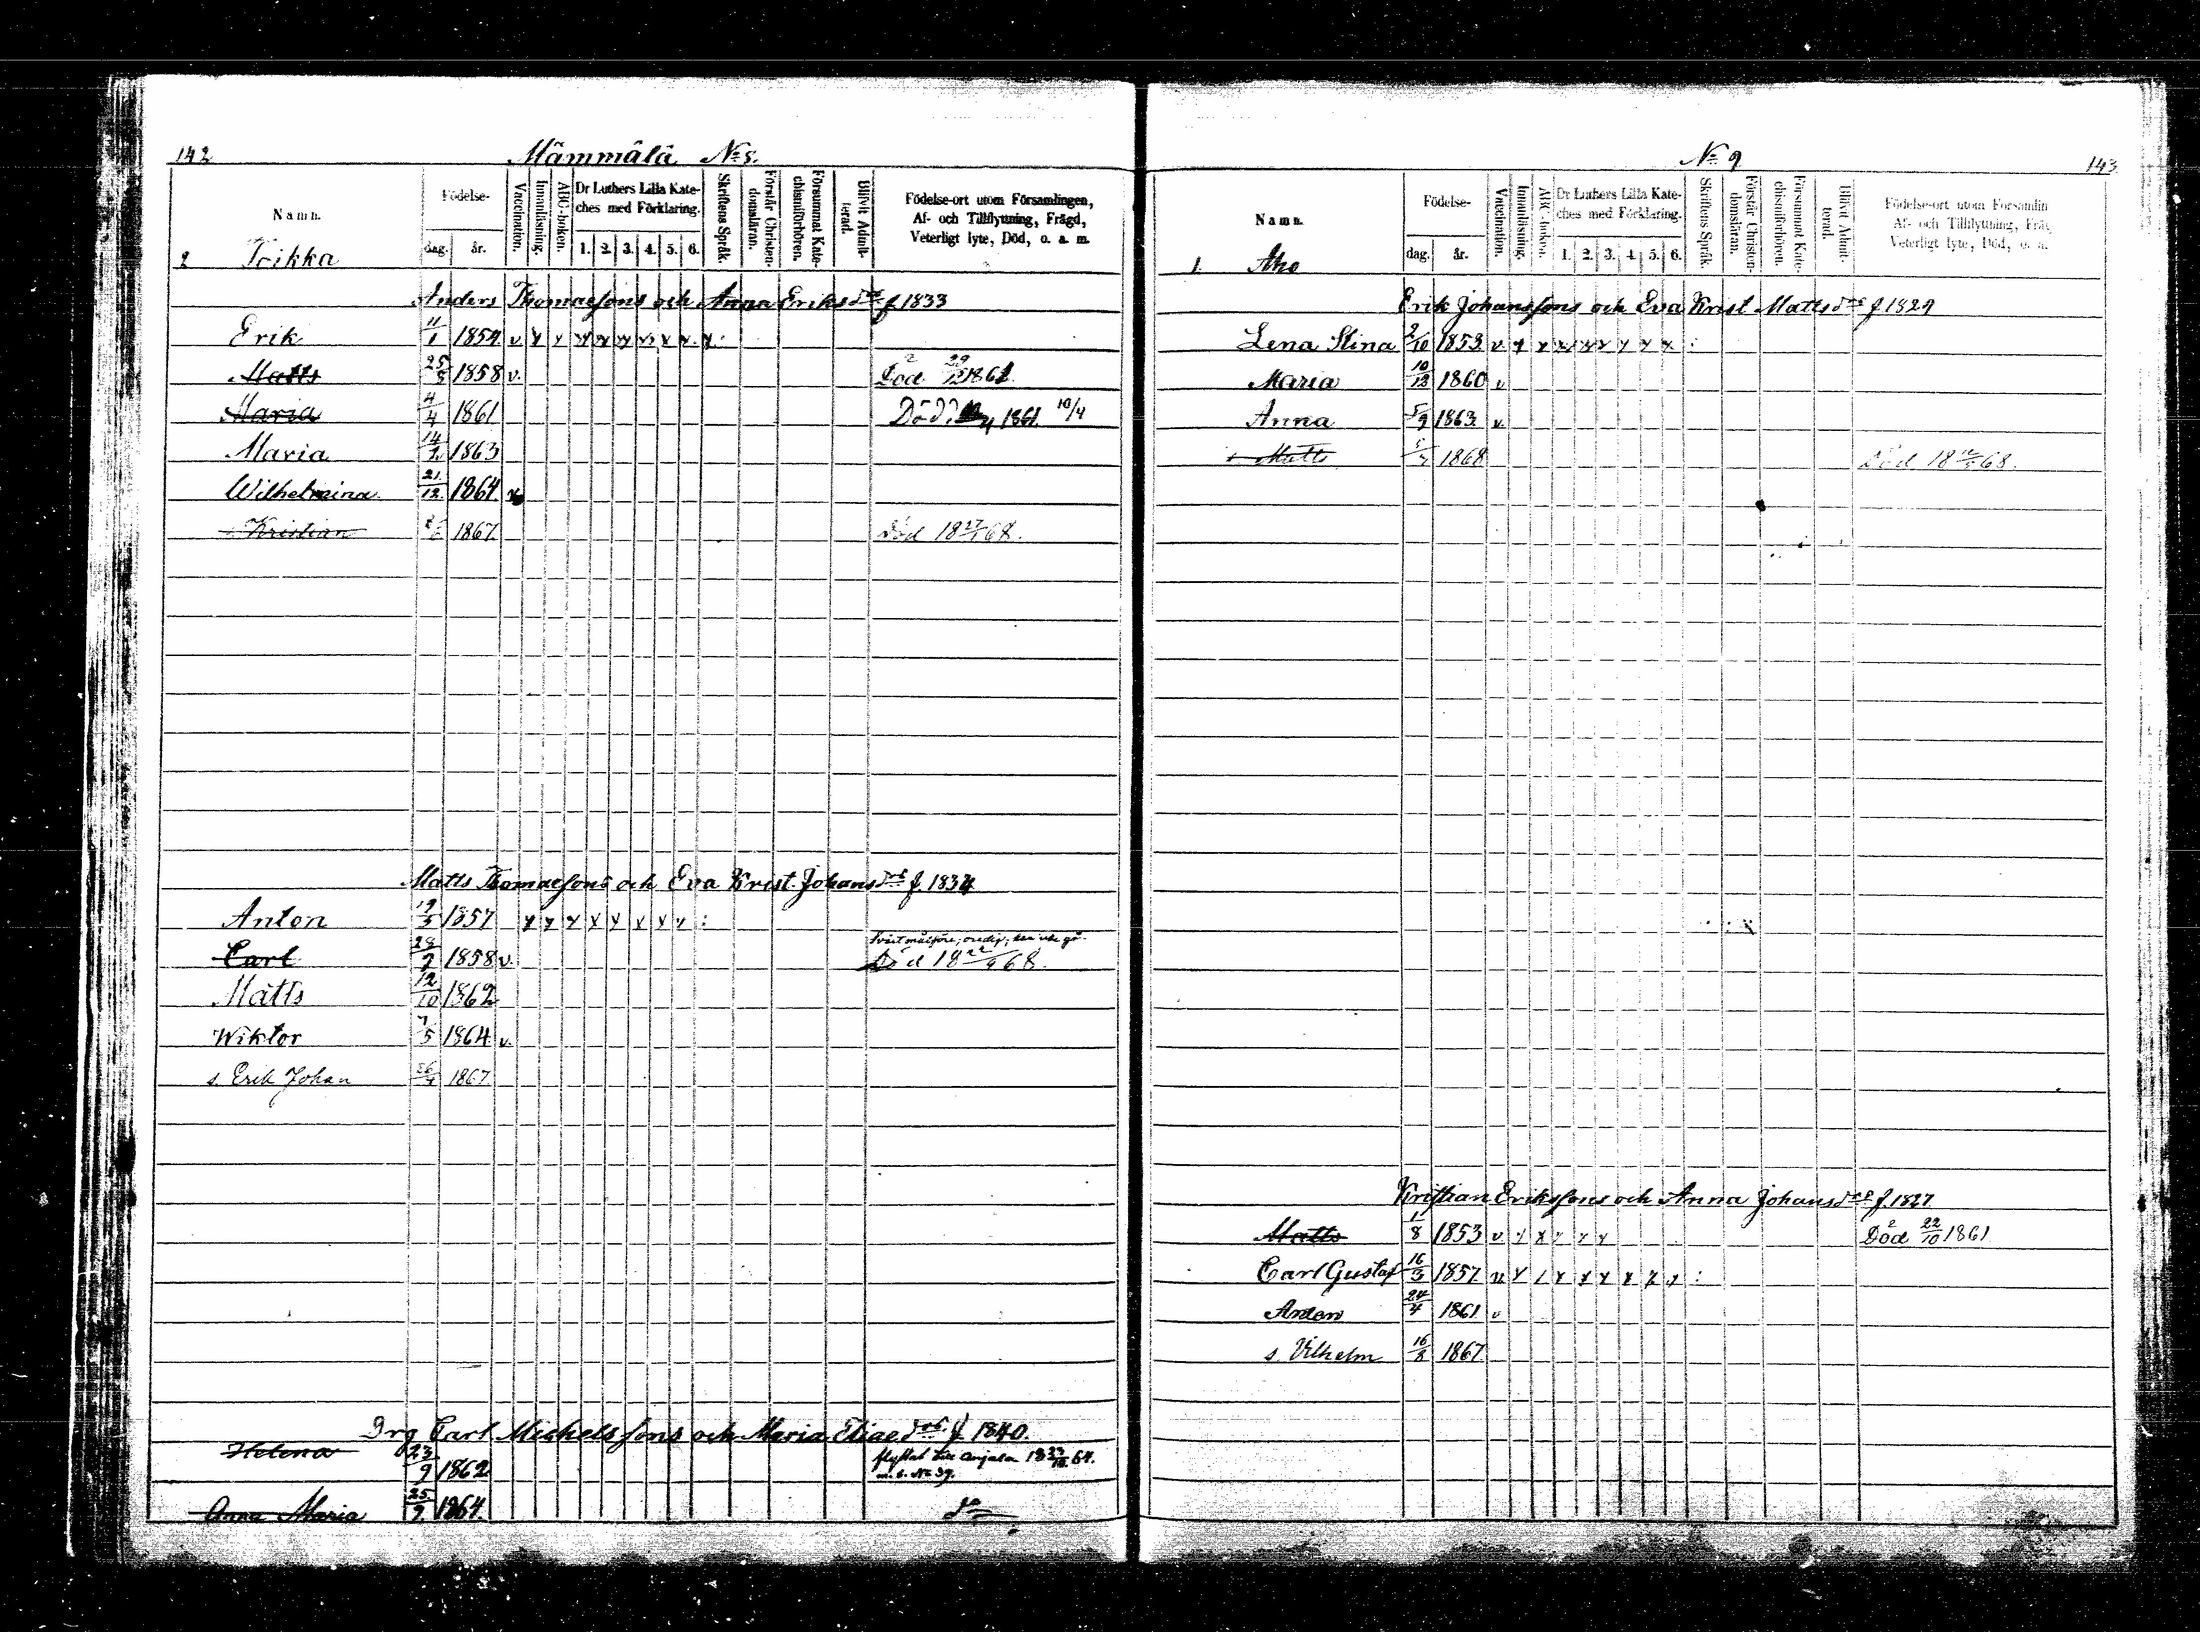 142 Mämmälä No 8.
Namn. Födelse- dag. år. Vaccination. Innanläsning. ABC-boken. Dr Luthers Lilla Kateches med Förklaring. 1. 2. 3. 4. 5. 6. Skriftens Språk. Förstår Christendomsläran. Försummat Katechismiförhören. Blifvit Admitterad. Födelse-ort utom Församlingen, Af- och Tillflyttning, Frägd, Veterligt lyte, Död, o. a. m.
2 Toikka
Anders Thomaesons och Anna Eriksdrs f 1833
Erik 11/1 1854 v x x x x x x x x x
Matts 25/8 1858 v. Död 29/12 1861.
Maria 4/4 1861 Död 1861. 10/4
Maria 14/2 1863
Wilhelmina 21/12 1864
Kristian 1867 Död 18 27/1 68.
Matts Thomaesons och Eva Krist. Johansdrs f 1834
Anton 19/3 1857 x x x x x x x x :
Carl 28/2 1858 v. Död 18 22/4 68.
Matts 12/10 1862
Wiktor 7/5 1864 v.
s. Erik Johan 26/4 1867
Drg Carl Michelssons och Maria Eliaedrs f 1840.
Helena 23/9 1862 flyttat till Anjala 64.
m. b. No 39.
Anna Maria 25/9 1864. do
No 9 143
Namn. Födelse- dag. år. Vaccination. Innanläsning. ABC-boken. Dr Luthers Lilla Kateches med Förklaring. 1. 2. 3. 4. 5. 6. Skriftens Språk. Förstår Christendomsläran. Försummat Katechismiförhören. Blifvit Admitterad. Födelse-ort utom Församlin Af- och Tillflyttning, Fräg Veterligt lyte, Död, o. a.
1. Aho
Erik Johanssons och Eva Krist Mattsdrs f 1829
Lena Stina 2/10 1853 v x x x x x x x x :
Maria 10/12 1860 v
Anna 5/9 1863 v
s Matts 1868 Död 18 68.
Kristian Erikssons och Anna Johansdrs f. 1827
Matts 1/8 1853 v x x x x x Död 22/10 1861
Carl Gustaf 16/3 1857 v x x x x x x x x :
Anton 24/4 1861 v
s. Vilhelm 16/8 1867